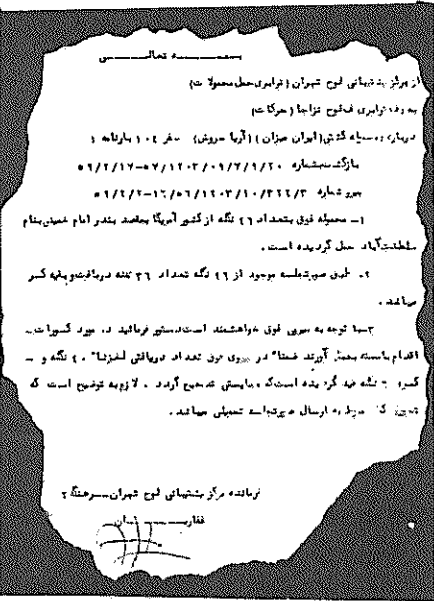 بسمه تعالی
از مرکز پشتیبانی لوح تهران (ترابری حمل محمولات)
به رف ترابری ف لوح نزاجا (حرکات)
درباره وسیله کشتی (ایران میزان) (آریا سروش) سفر ۱۰۴ بارنامه ۱
بازگشت بشماره ۵۷/۱۲۰۳/۰۹/۷/۹/۲۰-۵۹/۲/۱۷
پیرو شماره ۵۶/۱۲۰۳/۱۰/۳۲۲/۳-۵۹/۲/۲
۱- محموله فوق بتعداد ۴۶ نگه از کشور آمریکا بمقصد بندر امام خمینی بنام
سلطنت آباد حمل گردیده است.
۲- طبق صورتجلسه موجود از ۴۶ نگه تعداد ۳۶ نگه دریافت و بقیه کسر
میباشد.
۳- با توجه به مراتب فوق خواهشمند است دستور فرمائید در مورد کسورات
اقدام بایسته بعمل آورند ضمنا" در پیروی فوق تعداد دریافتی لغزنا" ۴۰ نگه و
کسری نگه قید گردیده است که میبایستی تصحیح گردد. لازم به توضیح است که
مربوط به ارسال صورتجلسه تحمیلی میباشد.
فرمانده مرکز پشتیبانی لوح تهران - سرهنگ ۲
غفاریان